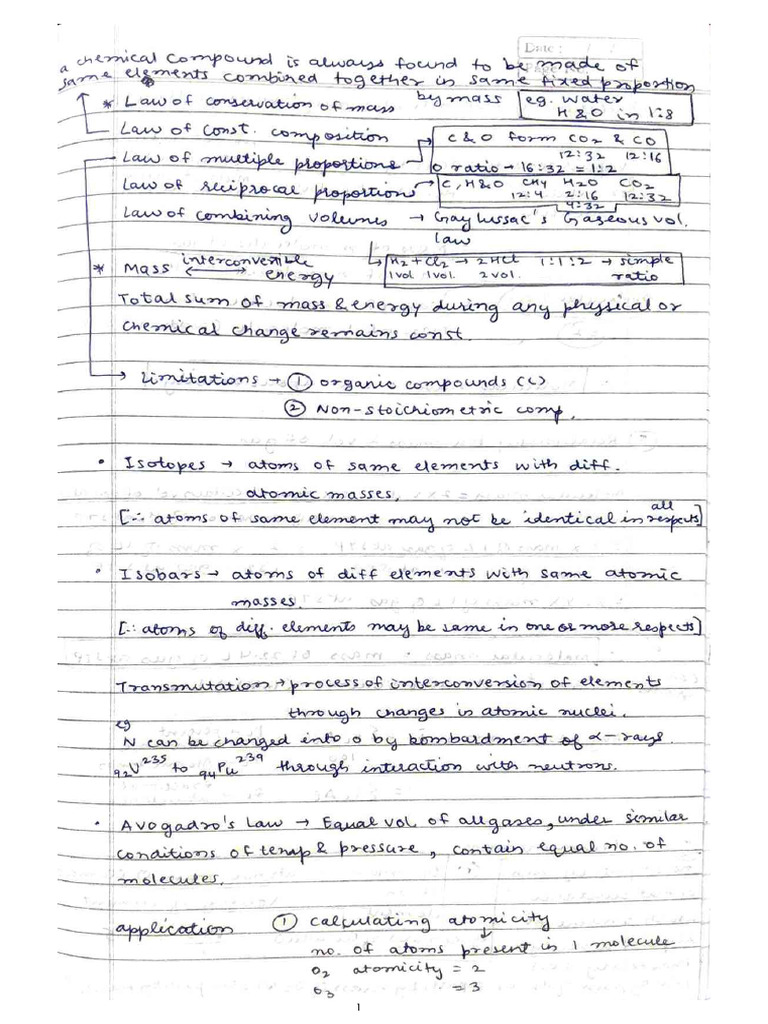 Date :
a chemical compound is always found to be made of
same elements combined together in same fixed proportion
by mass
eg. water
H & O in 1:8
* Law of conservation of mass
Law of const. composition
C & O form CO2 & CO
12:32 12:16
Law of multiple proportions
O ratio → 16:32 = 1:2
Law of reciprocal proportion → C, H & O CH4 H2O CO2
12:4 2:16 12:32
4:32
Law of combining volumes → Gay lussac's Gaseous vol.
law
H2 + Cl2 → 2HCl 1:1:2 → simple
1vol 1vol. 2vol. ratio
* Mass interconvertible energy
Total sum of mass & energy during any physical or
chemical change remains const.
Limitations → ① organic compounds (C)
② Non-stoichiometric comp.
• Isotopes → atoms of same elements with diff.
atomic masses.
[∴ atoms of same element may not be identical in all respects]
• Isobars → atoms of diff elements with same atomic
masses.
[∴ atoms of diff. elements may be same in one or more respects]
Transmutation → process of interconversion of elements
through changes in atomic nuclei.
eg
N can be changed into O by bombardment of α-rays.
92U235 to 94Pu239 through interaction with neutrons.
• Avogadro's Law → Equal vol. of all gases, under similar
conditions of temp & pressure, contain equal no. of
molecules.
application ① calculating atomicity
no. of atoms present in 1 molecule
O2 atomicity = 2
O3 = 3
1